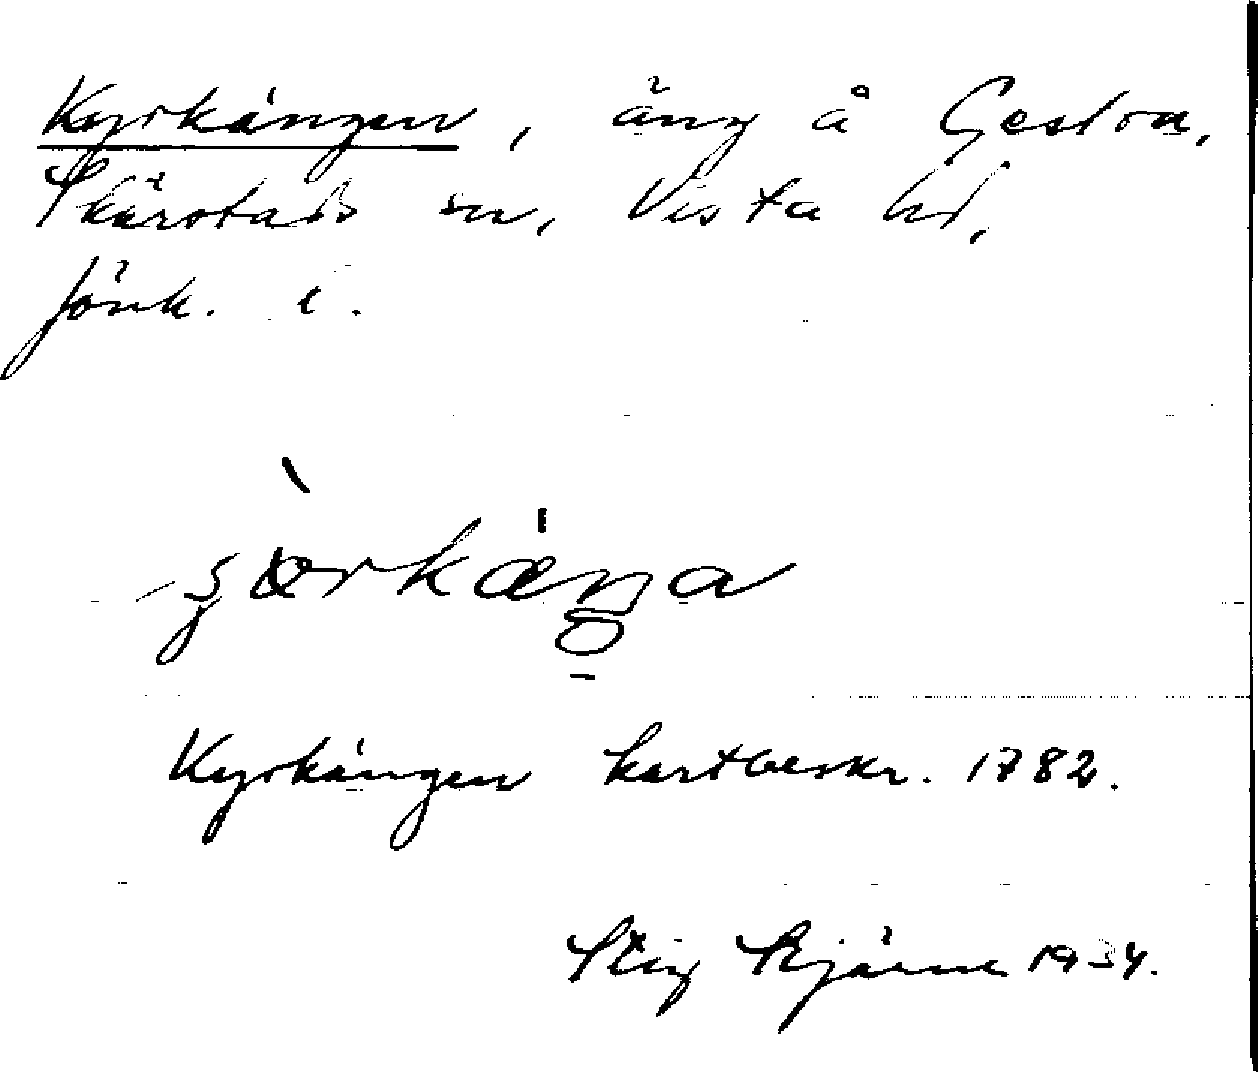 Kyrkängen, äng å Gestra,
Skärstads sn, Vista hd,
Jönk. l.
Kyrkängen kartbeskr. 1782.
Stig 1934.